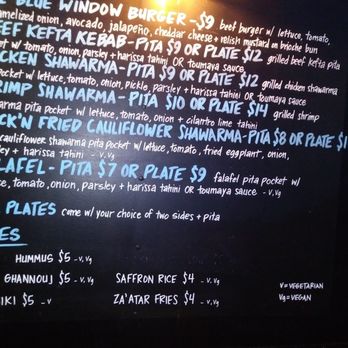 BLUE WINDOW BURGER-$9 beef burger w/ lettuce, tomato,
onion, avocado, jalapeño, cheddar cheese + relish mustard on brioche bun
KEFTA KEBAB- PITA $9 OR PLATE $12 grilled beef kefta pita
w/ tomato, onion, parsley + harissa tahini OR toumaya sauce
SHAWARMA- PITA $9 OR PLATE $12 grilled chicken shawarma
pocket w/ lettuce, tomato, onion, pickle, parsley + harissa tahini OR toumaya sauce
SHAWARMA - PITA $10 OR PLATE $14 grilled shrimp
pita pocket w/ lettuce, tomato, onion + cilantro lime tahini
FRIED CAULIFLOWER SHAWARMA-PITA $8 OR PLATE
cauliflower shawarma pita pocket w/ lettuce, tomato, fried eggplant, onion,
+ harissa tahini - v, vg
- PITA $7 OR PLATE $9 falafel pita pocket w/
tomato, onion, parsley + harissa tahini OR toumaya sauce - v, vg
PLATES come w/ your choice of two sides + pita
HUMMUS $5 -v, vg
GHANNOUJ $5 -v, vg SAFFRON RICE $4 -v, vg V=VEGETARIAN
$5 -v ZA'ATAR FRIES $4 -v, vg Vg=VEGAN